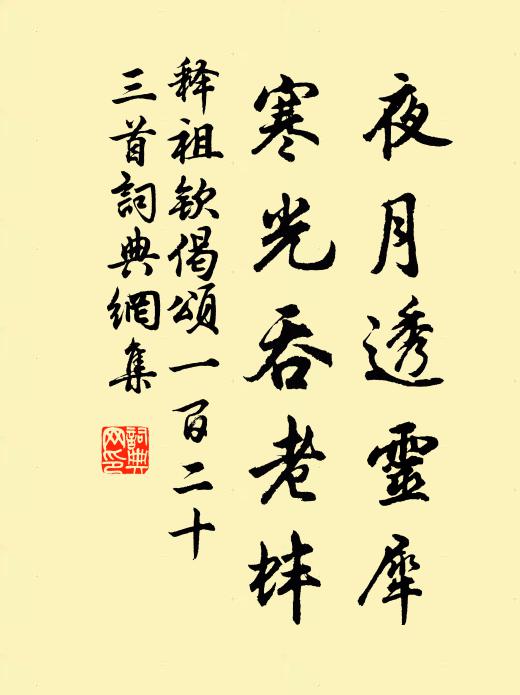 夜月透靈犀
寒光吞老蚌
释祖钦偈頌一百二十
三首詞典網集
詞典
网印